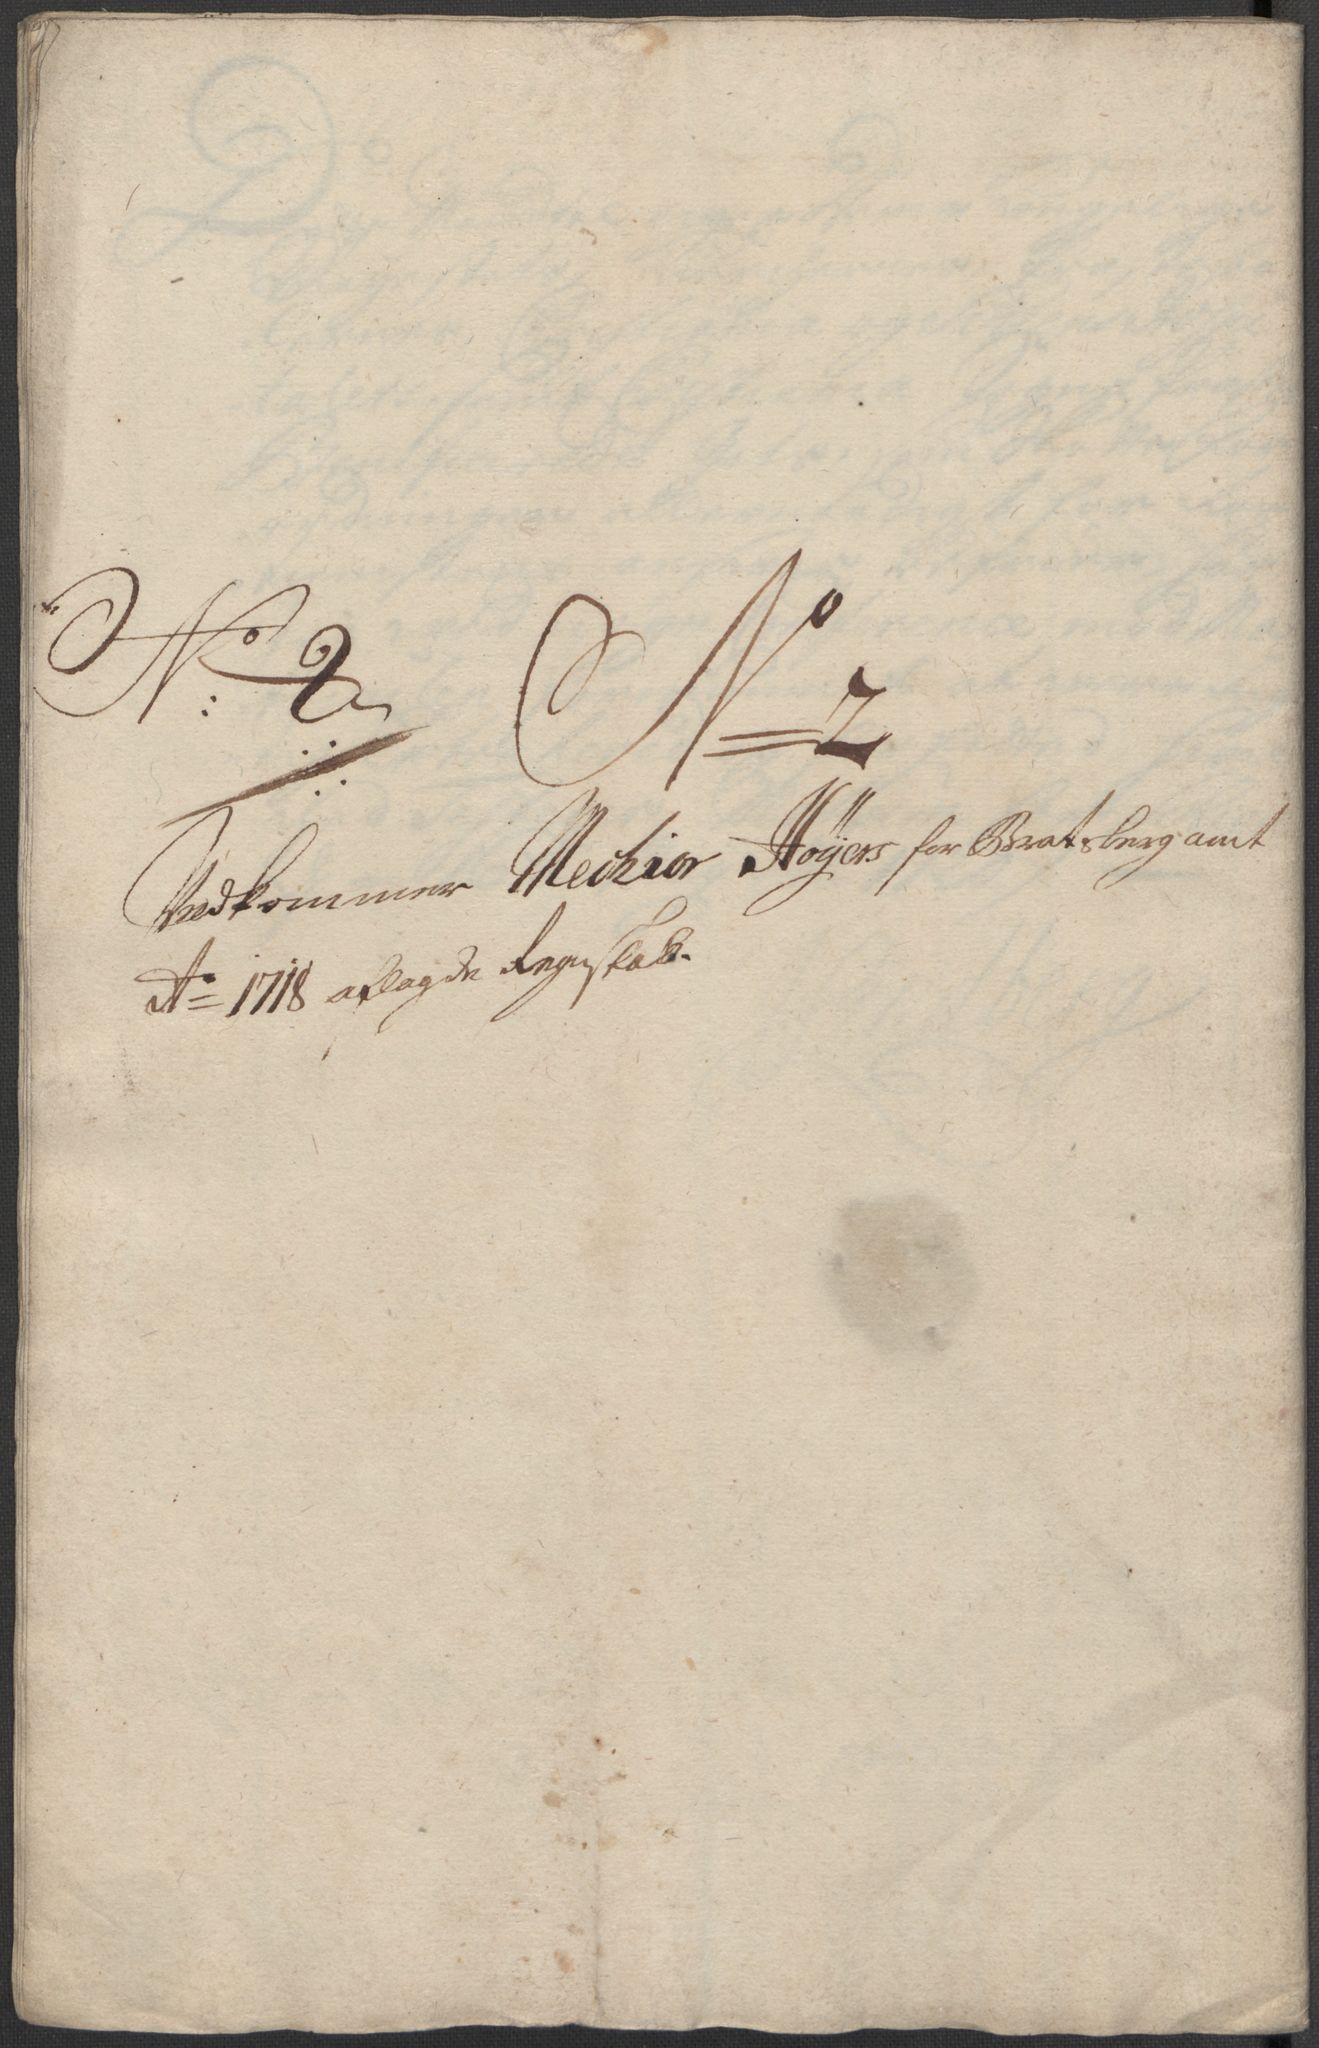 No: 2
No 2
Vedkommer Mechior Höÿers for Bratsberg amt
Ao 1718 aflagde Regnskab.